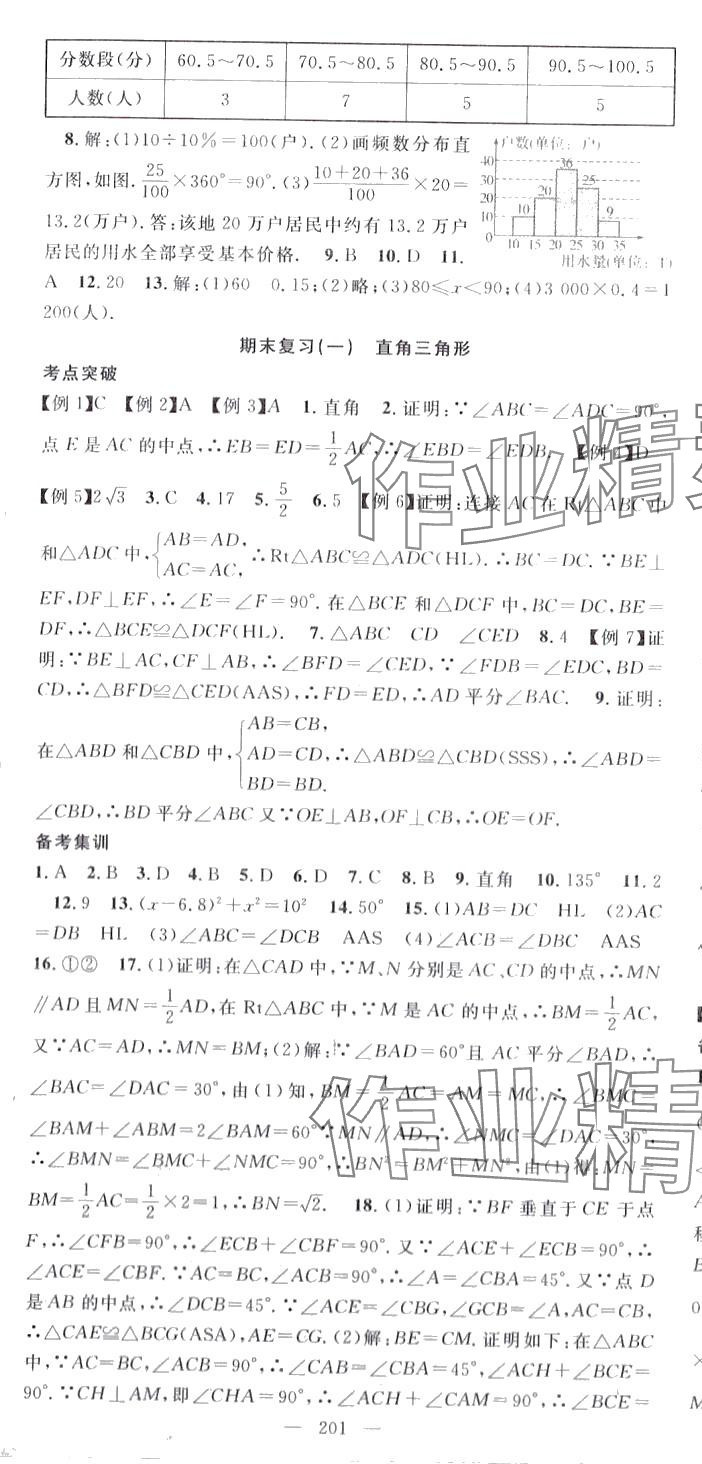 分数段(分) 60.5～70.5 70.5～80.5 80.5～90.5 90.5～100.5
人数(人) 3 7 5 5
8.解:(1)10÷10%=100(户).(2)画频数分布直
方图,如图.25/100×360°=90°.(3)(10+20+36)/100×20=
13.2(万户).答:该地 20 万户居民中约有 13.2 万户
居民的用水全部享受基本价格. 9.B 10.D 11.
户数(单位:户)
40 30 20 10 0
10 20 36 25 9
10 15 20 25 30 35
用水量(单位:t)
A 12.20 13.解:(1)60 0.15;(2)略;(3)80≤x<90;(4)3 000×0.4=1
200(人).
期末复习(一) 直角三角形
考点突破
【例1】C 【例2】A 【例3】A 1.直角 2.证明:∵∠ABC=∠ADC=90°,
点 E 是 AC 的中点,∴EB=ED=1/2AC,∴∠EBD=∠EDB. 【例4】D
【例5】2√3 3.C 4.17 5.5/2 6.5 【例6】证明:连接 AC 在 Rt△ABC 中
和△ADC 中,{AB=AD, AC=AC, ∴Rt△ABC≌△ADC(HL).∴BC=DC.∵BE⊥
EF,DF⊥EF,∴∠E=∠F=90°.在△BCE 和△DCF 中,BC=DC,BE=
DF,∴△BCE≌△DCF(HL). 7.△ABC CD ∠CED 8.4 【例7】证
明:∵BE⊥AC,CF⊥AB,∴∠BFD=∠CED,∵∠FDB=∠EDC,BD=
CD,∴△BFD≌△CED(AAS),∴FD=ED,∴AD 平分∠BAC. 9.证明:
在△ABD 和△CBD 中,{AB=CB, AD=CD, BD=BD. ∴△ABD≌△CBD(SSS),∴∠ABD=
∠CBD,∴BD 平分∠ABC 又∵OE⊥AB,OF⊥CB,∴OE=OF.
备考集训
1.A 2.B 3.D 4.B 5.D 6.D 7.C 8.B 9.直角 10.135° 11.2
12.9 13.(x-6.8)²+x²=10² 14.50° 15.(1)AB=DC HL (2)AC
=DB HL (3)∠ABC=∠DCB AAS (4)∠ACB=∠DBC AAS
16.①② 17.(1)证明:在△CAD 中,∵M、N 分别是 AC、CD 的中点,∴MN
∥AD 且 MN=1/2AD,在 Rt△ABC 中,∵M 是 AC 的中点,∴BM=1/2AC,
又∵AC=AD,∴MN=BM;(2)解:∵∠BAD=60°且 AC 平分∠BAD,∴
∠BAC=∠DAC=30°,由(1)知,BM=1/2AC=AM=MC,∴∠BMC=
∠BAM+∠ABM=2∠BAM=60°∵MN∥AD,∴∠NMC=∠DAC=30°,
∴∠BMN=∠BMC+∠NMC=90°,∴BN²=BM²+MN²,由(1)得:MN=
BM=1/2AC=1/2×2=1,∴BN=√2. 18.(1)证明:∵BF 垂直于 CE 于点
F,∴∠CFB=90°,∴∠ECB+∠CBF=90°.又∵∠ACE+∠ECB=90°,∴
∠ACE=∠CBF.∵AC=BC,∠ACB=90°,∴∠A=∠CBA=45°.又∵点 D
是 AB 的中点,∴∠DCB=45°.∵∠ACE=∠CBG,∠GCB=∠A,AC=CB,
∴△CAE≌△BCG(ASA),AE=CG.(2)解:BE=CM.证明如下:在△ABC
中,∵AC=BC,∠ACB=90°,∴∠CAB=∠CBA=45°,∠ACH+∠BCE=
90°.∵CH⊥AM,即∠CHA=90°,∴∠ACH+∠CAH=90°,∴∠BCE=
— 201 —
作业精
作业精